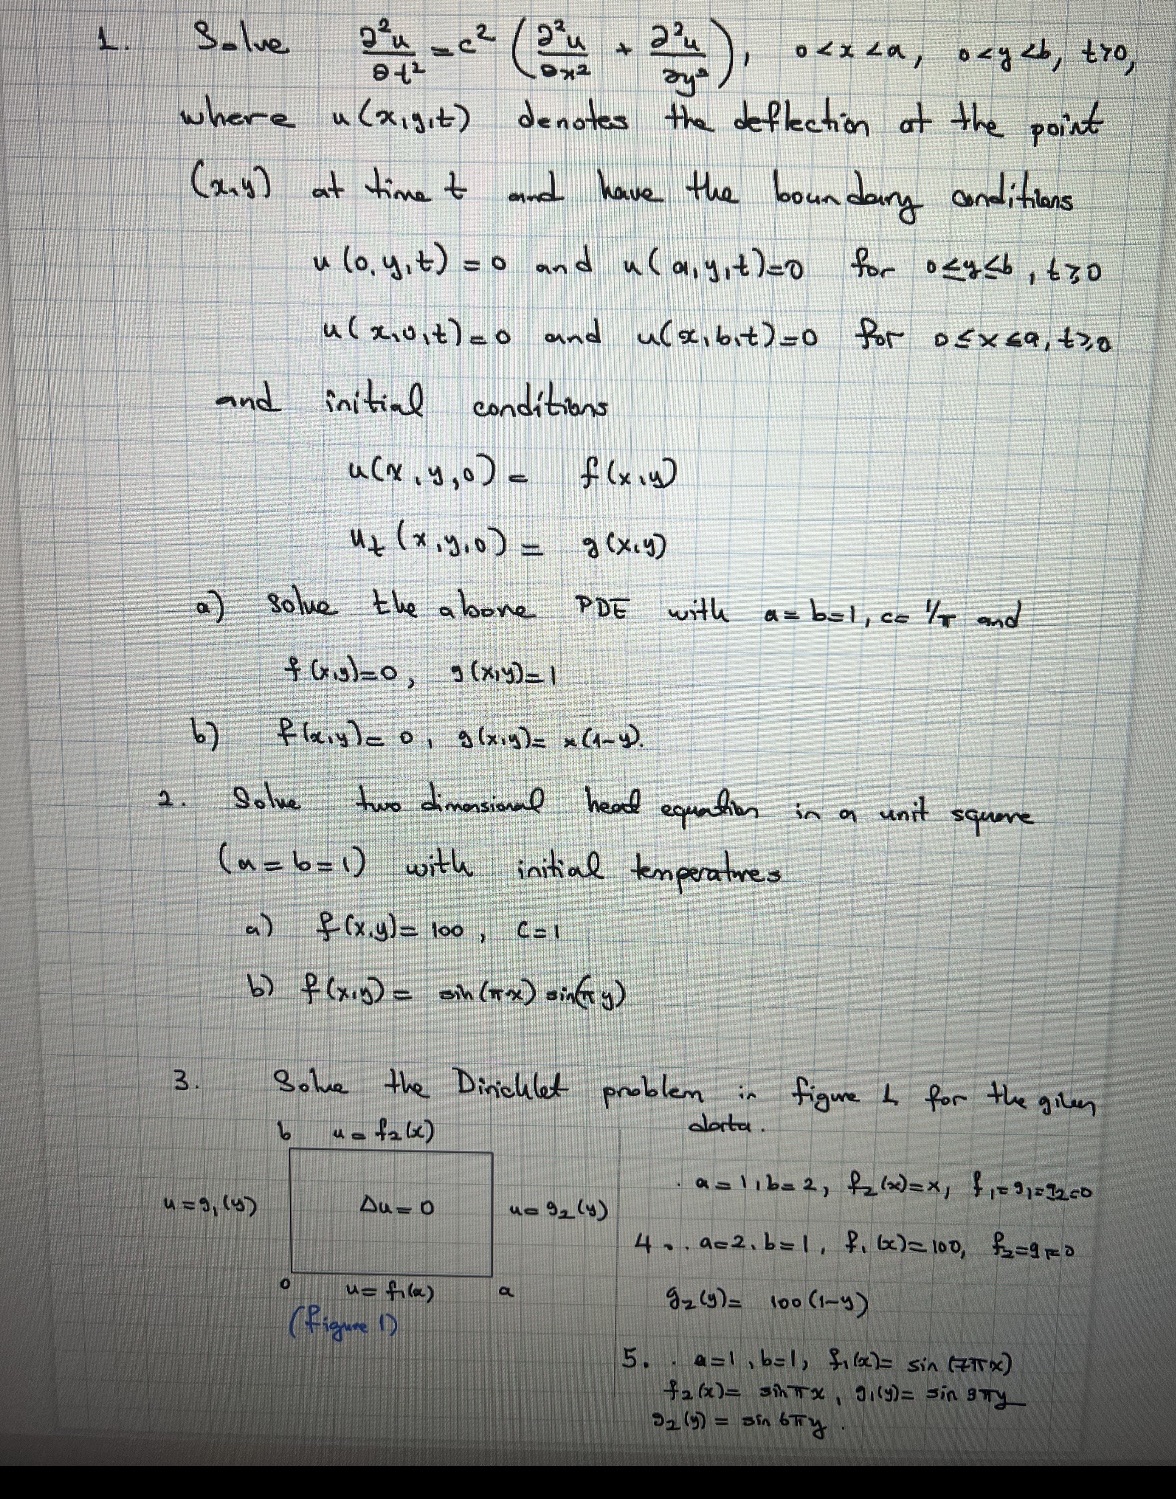 1. Solve ∂²u/∂t² = c² (∂²u/∂x² + ∂²u/∂y²), 0<x<a, 0<y<b, t>0,
where u(x,y,t) denotes the deflection at the point
(x,y) at time t and have the boundary conditions
u(0,y,t)=0 and u(a,y,t)=0 for 0≤y≤b, t≥0
u(x,0,t)=0 and u(x,b,t)=0 for 0≤x≤a, t≥0
and initial conditions
u(x,y,0) = f(x,y)
u_t(x,y,0) = g(x,y)
a) Solve the above PDE with a=b=1, c=1/π and
f(x,y)=0, g(x,y)=1
b) f(x,y)=0, g(x,y)=x(1-y).
2. Solve two dimensional head equation in a unit square
(a=b=1) with initial temperatures
a) f(x,y)=100, c=1
b) f(x,y)= sin(πx) sin(πy)
3. Solve the Dirichlet problem in figure 1 for the given
data.
b u=f₂(x)
u=g₁(y) Δu=0 u=g₂(y)
0 u=f₁(x) a
(figure 1)
. a=1, b=2, f₂(x)=x, f₁=g₁=g₂=0
4. . a=2, b=1, f₁(x)=100, f₂=g₁=0
g₂(y)= 100(1-y)
5. . a=1, b=1, f₁(x)= sin(7πx)
f₂(x)= sin πx, g₁(y)= sin 3πy
g₂(y) = sin 6πy.